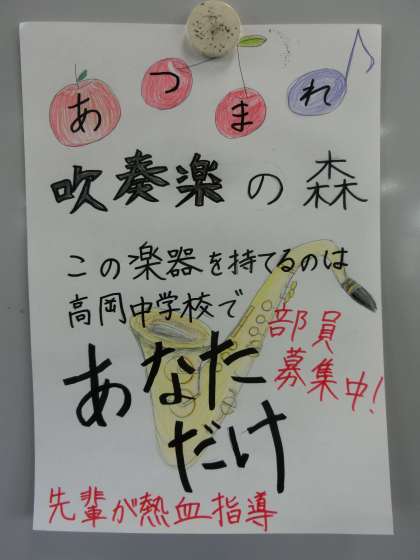 あつまれ
吹奏楽の森
この楽器を持てるのは
高岡中学校で
あなた
だけ
部員
募集中!
先輩が熱血指導